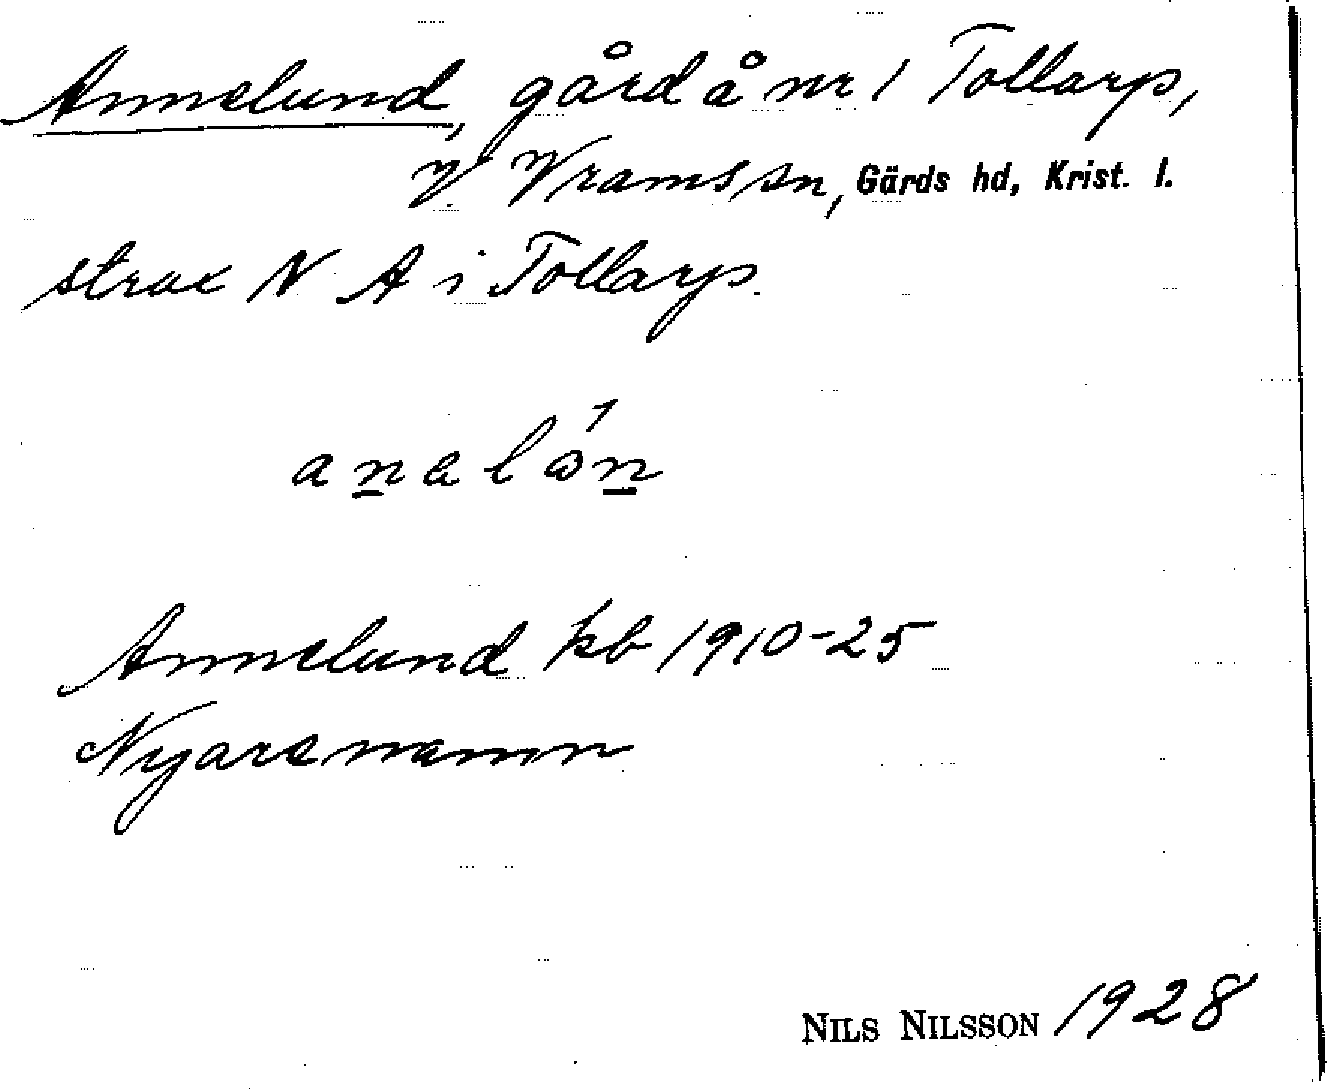 Annelund, gård å nr 1 Tollarp,
V. Vrams sn, Gärds hd, Krist. l.
strax N A i Tollarp.
analǿn
Annelund kb 1910-25
Nyare namn
NILS NILSSON 1928